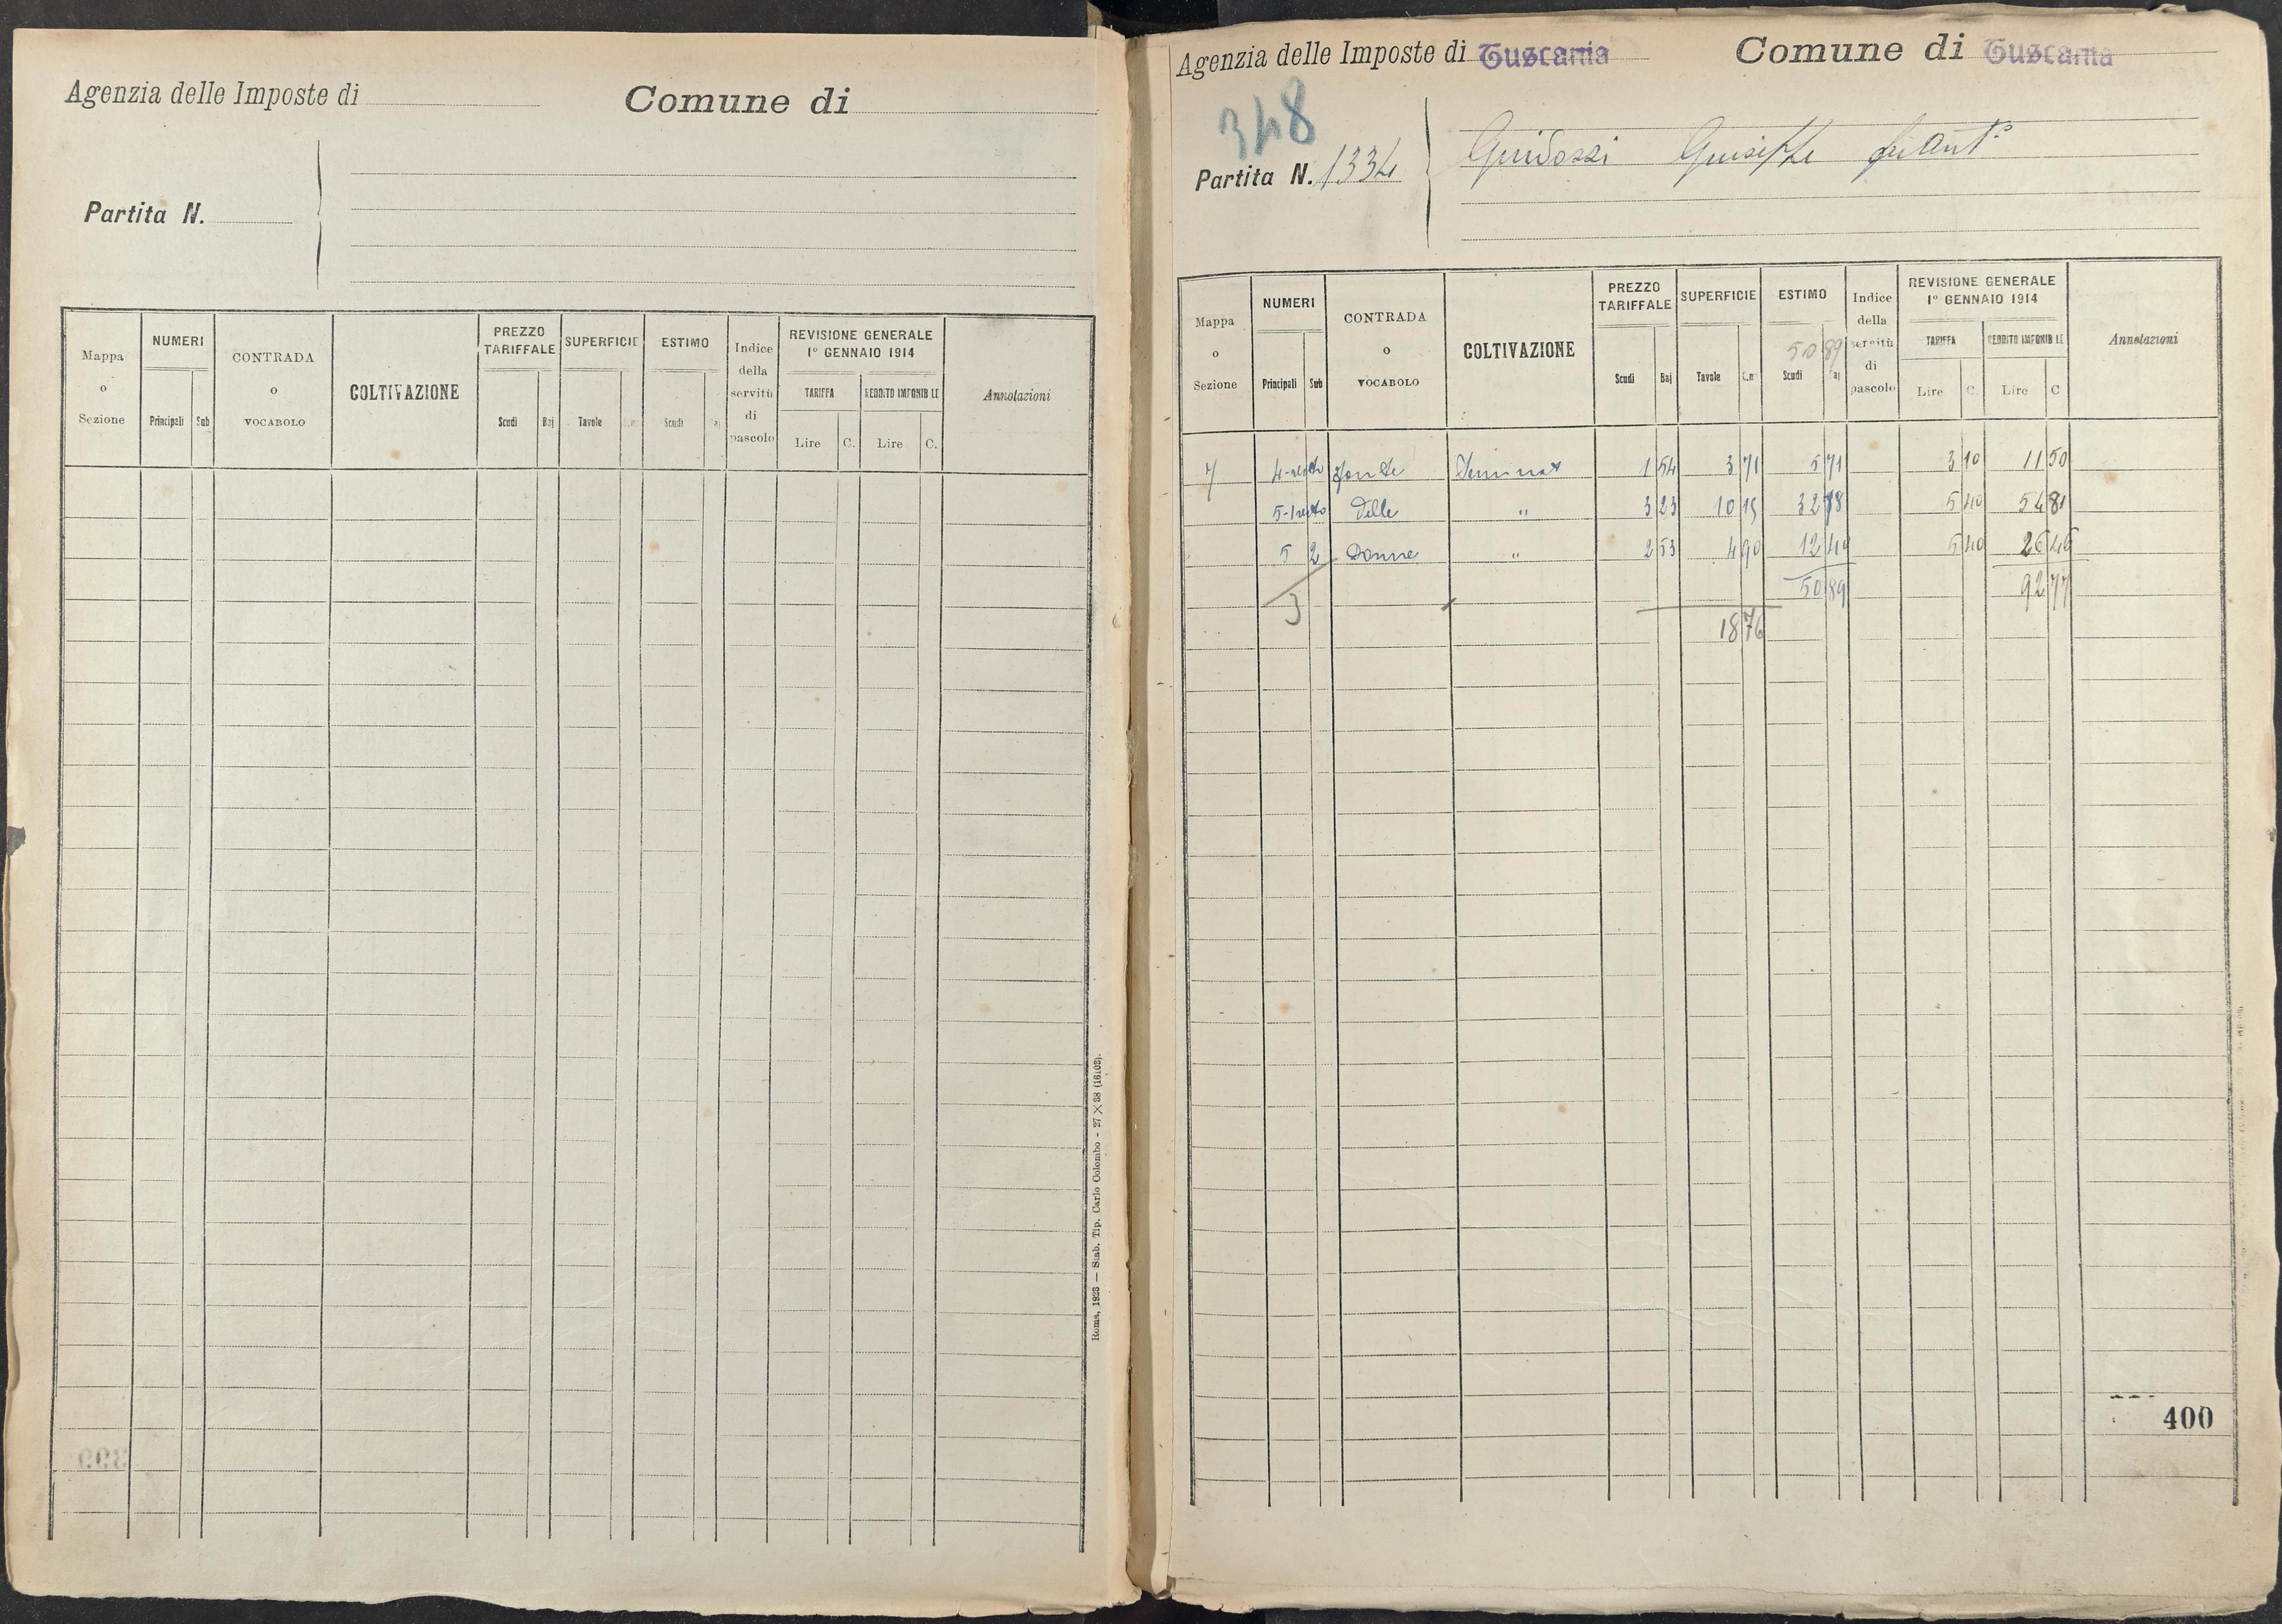 Agenzia delle Imposte di
Comune di
Partita N.
Mappa o Sezione
NUMERI
Principali Sub
CONTRADA o VOCABOLO
COLTIVAZIONE
PREZZO TARIFFALE
Scudi Baj
SUPERFICIE
Tavole
ESTIMO
Scudi
Indice della servitù di pascolo
REVISIONE GENERALE
1° GENNAIO 1914
TARIFFA
Lire C.
REDDITO IMPONIBILE
Lire C.
Annotazioni
Roma, 1923 — Stab. Tip. Carlo Colombo - 27 X 38 (16103).
Agenzia delle Imposte di Tuscania
Comune di Tuscania
348
Partita N. 1334
Guidozzi Giuseppe fu Ant°
Mappa o Sezione
NUMERI
Principali Sub
CONTRADA o VOCABOLO
COLTIVAZIONE
PREZZO TARIFFALE
Scudi Baj
SUPERFICIE
Tavole
ESTIMO
50 89
Scudi Baj
Indice della servitù di pascolo
REVISIONE GENERALE
1° GENNAIO 1914
TARIFFA
Lire C.
REDDITO IMPONIBILE
Lire C
Annotazioni
7 4-resto Fonte Seminat 1 54 3 71 5 71 3 10 11 50
5-1 resto Delle " 3 23 10 15 32 78 5 40 54 81
5 2 Donne " 2 53 4 90 12 40 5 40 26 46
50 89 92 77
3
18 76
400